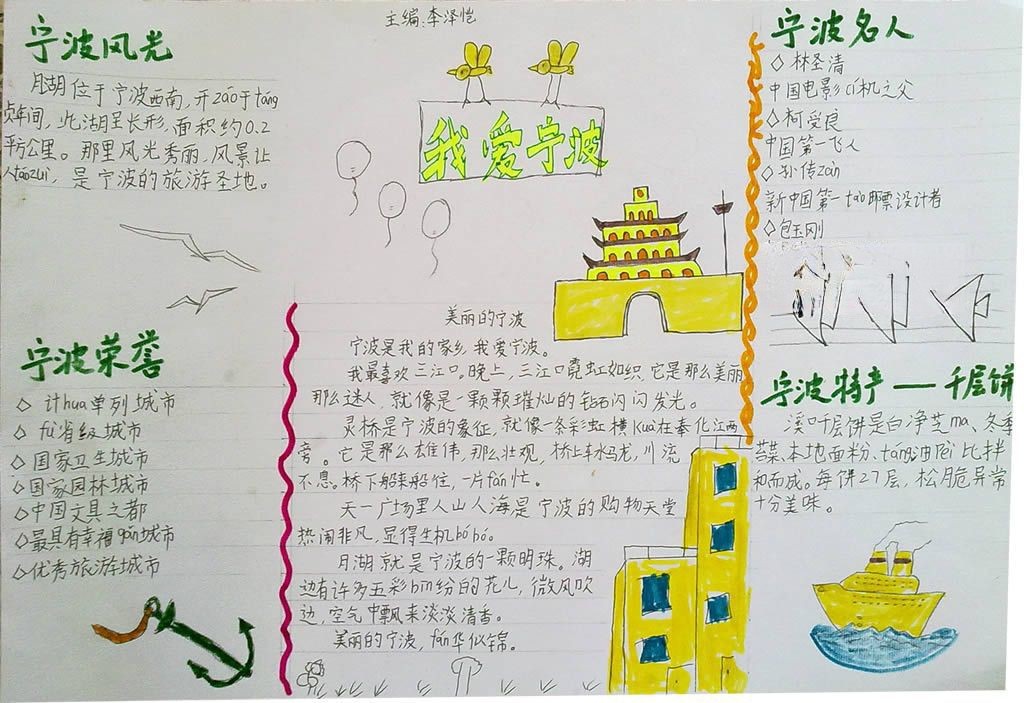 主编:李泽恺
宁波风光
月湖位于宁波西南,开záo于táng
贞年间,此湖呈长形,面积约0.2
平方公里。那里风光秀丽,风景让
人táozuì,是宁波的旅游圣地。
宁波荣誉
◇ 计huà单列城市
◇ fù省级城市
◇ 国家卫生城市
◇ 国家园林城市
◇ 中国文具之都
◇ 最具有幸福gǎn城市
◇ 优秀旅游城市
我爱宁波
美丽的宁波
宁波是我的家乡,我爱宁波。
我最喜欢三江口。晚上,三江口霓虹如织,它是那么美丽
那么迷人,就像是一颗颗璀灿的钻石闪闪发光。
灵桥是宁波的象征,就像一条彩虹横kuà在奉化江两
旁。它是那么雄伟,那么壮观,桥上车水马龙,川流
不息。桥下船来船往,一片fán忙。
天一广场里人山人海是宁波的购物天堂
热闹非凡,显得生机bóbó。
月湖就是宁波的一颗明珠。湖
边有许多五彩bīn纷的花儿,微风吹
过,空气中飘来淡淡清香。
美丽的宁波,fán华似锦。
宁波名人
◇ 林圣清
中国电影cí机之父
◇ 柯受良
中国第一飞人
◇ 孙传zán
新中国第一tào邮票设计者
◇ 包玉刚
宁波特产——千层饼
溪口千层饼是白净芝ma、冬季
苔菜、本地面粉、táng油pèi比拌
和而成。每饼27层,松脆异常
十分美味。